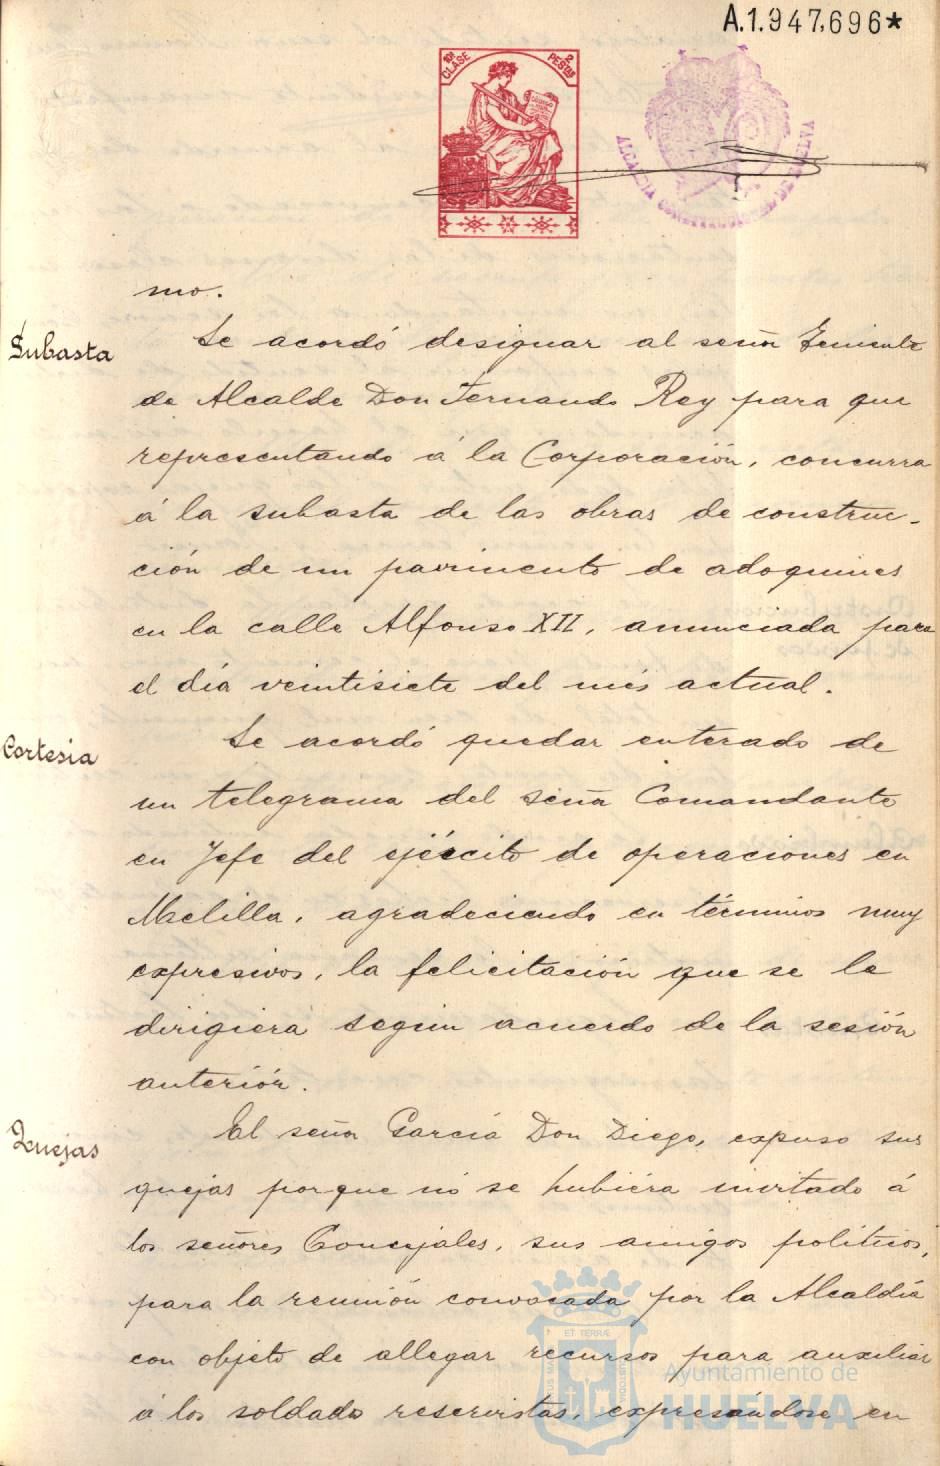 A.1.947,696*
10ª CLASE
2 PESTAS
ALCALDIA CONSTITUCIONAL DE HUELVA
mo.
Subasta
Se acordó designar al señor Teniente
de Alcalde Don Fernando Rey para que
representando á la Corporación, concurra
á la subasta de las obras de construc-
ción de un pavimento de adoquines
en la calle Alfonso XII, anunciada para
el día veintisiete del mes actual.
Cortesia
Se acordó quedar enterado de
un telegrama del señor Comandante
en Jefe del ejército de operaciones en
Melilla, agradeciendo en términos muy
expresivos, la felicitación que se le
dirigiera según acuerdo de la sesión
anteriór.
Quejas
El señor García Don Diego, expuso sus
quejas porque nó se hubiéra invitado á
los señores Concejales, sus amigos politicos,
para la reunión convocada por la Alcaldía
con objeto de allegar recursos para auxiliar
á los soldados reservistas, expresándose en
Ayuntamiento de
HUELVA